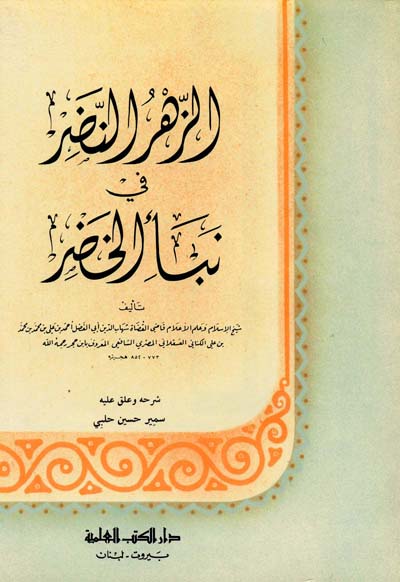 الزَّهرُ النَّضِر
في
نَبَأ الخَضِر
تأليف
شيخ الإسلام وعلم الأعلام قاضي القضاة شهاب الدين أبي الفضل أحمد بن علي بن محمد بن محمد
بن علي الكناني العسقلاني المصري الشافعي المعروف بابن حجر رحمه الله
٧٧٣ - ٨٥٢ هجرية
شرحه وعلق عليه
سمير حسين حلبي
دار الكتب العلمية
بيروت - لبنان